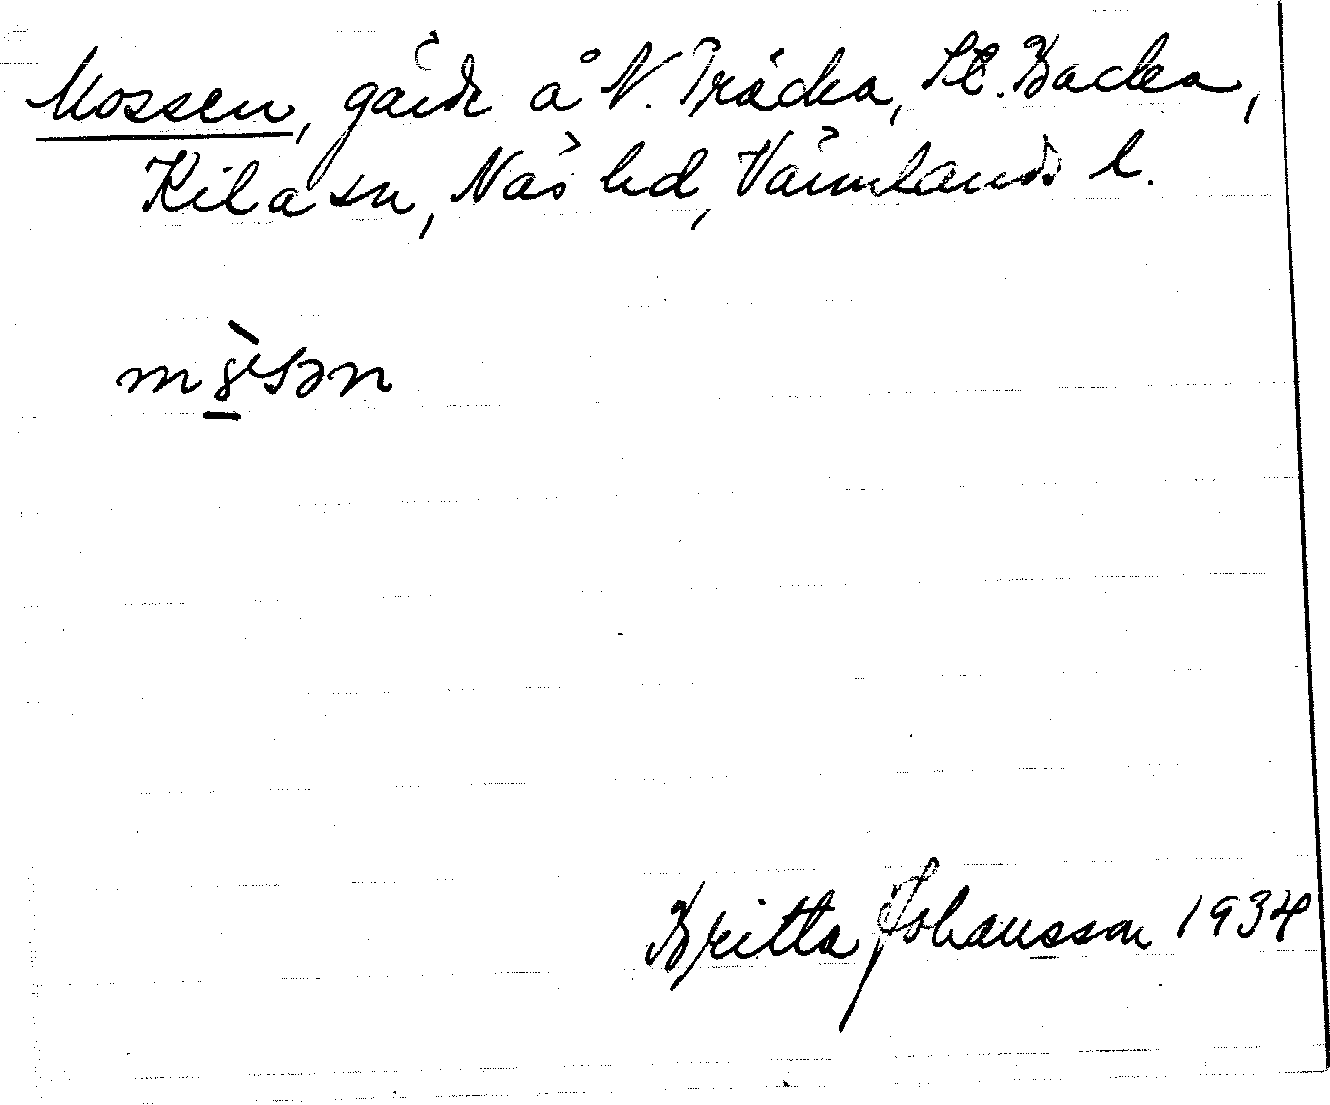 Mossen, gärde å N. Träcka, St. Backa,
Kila sn, Näs hd, Värmlands l.
Britta Johansson 1934